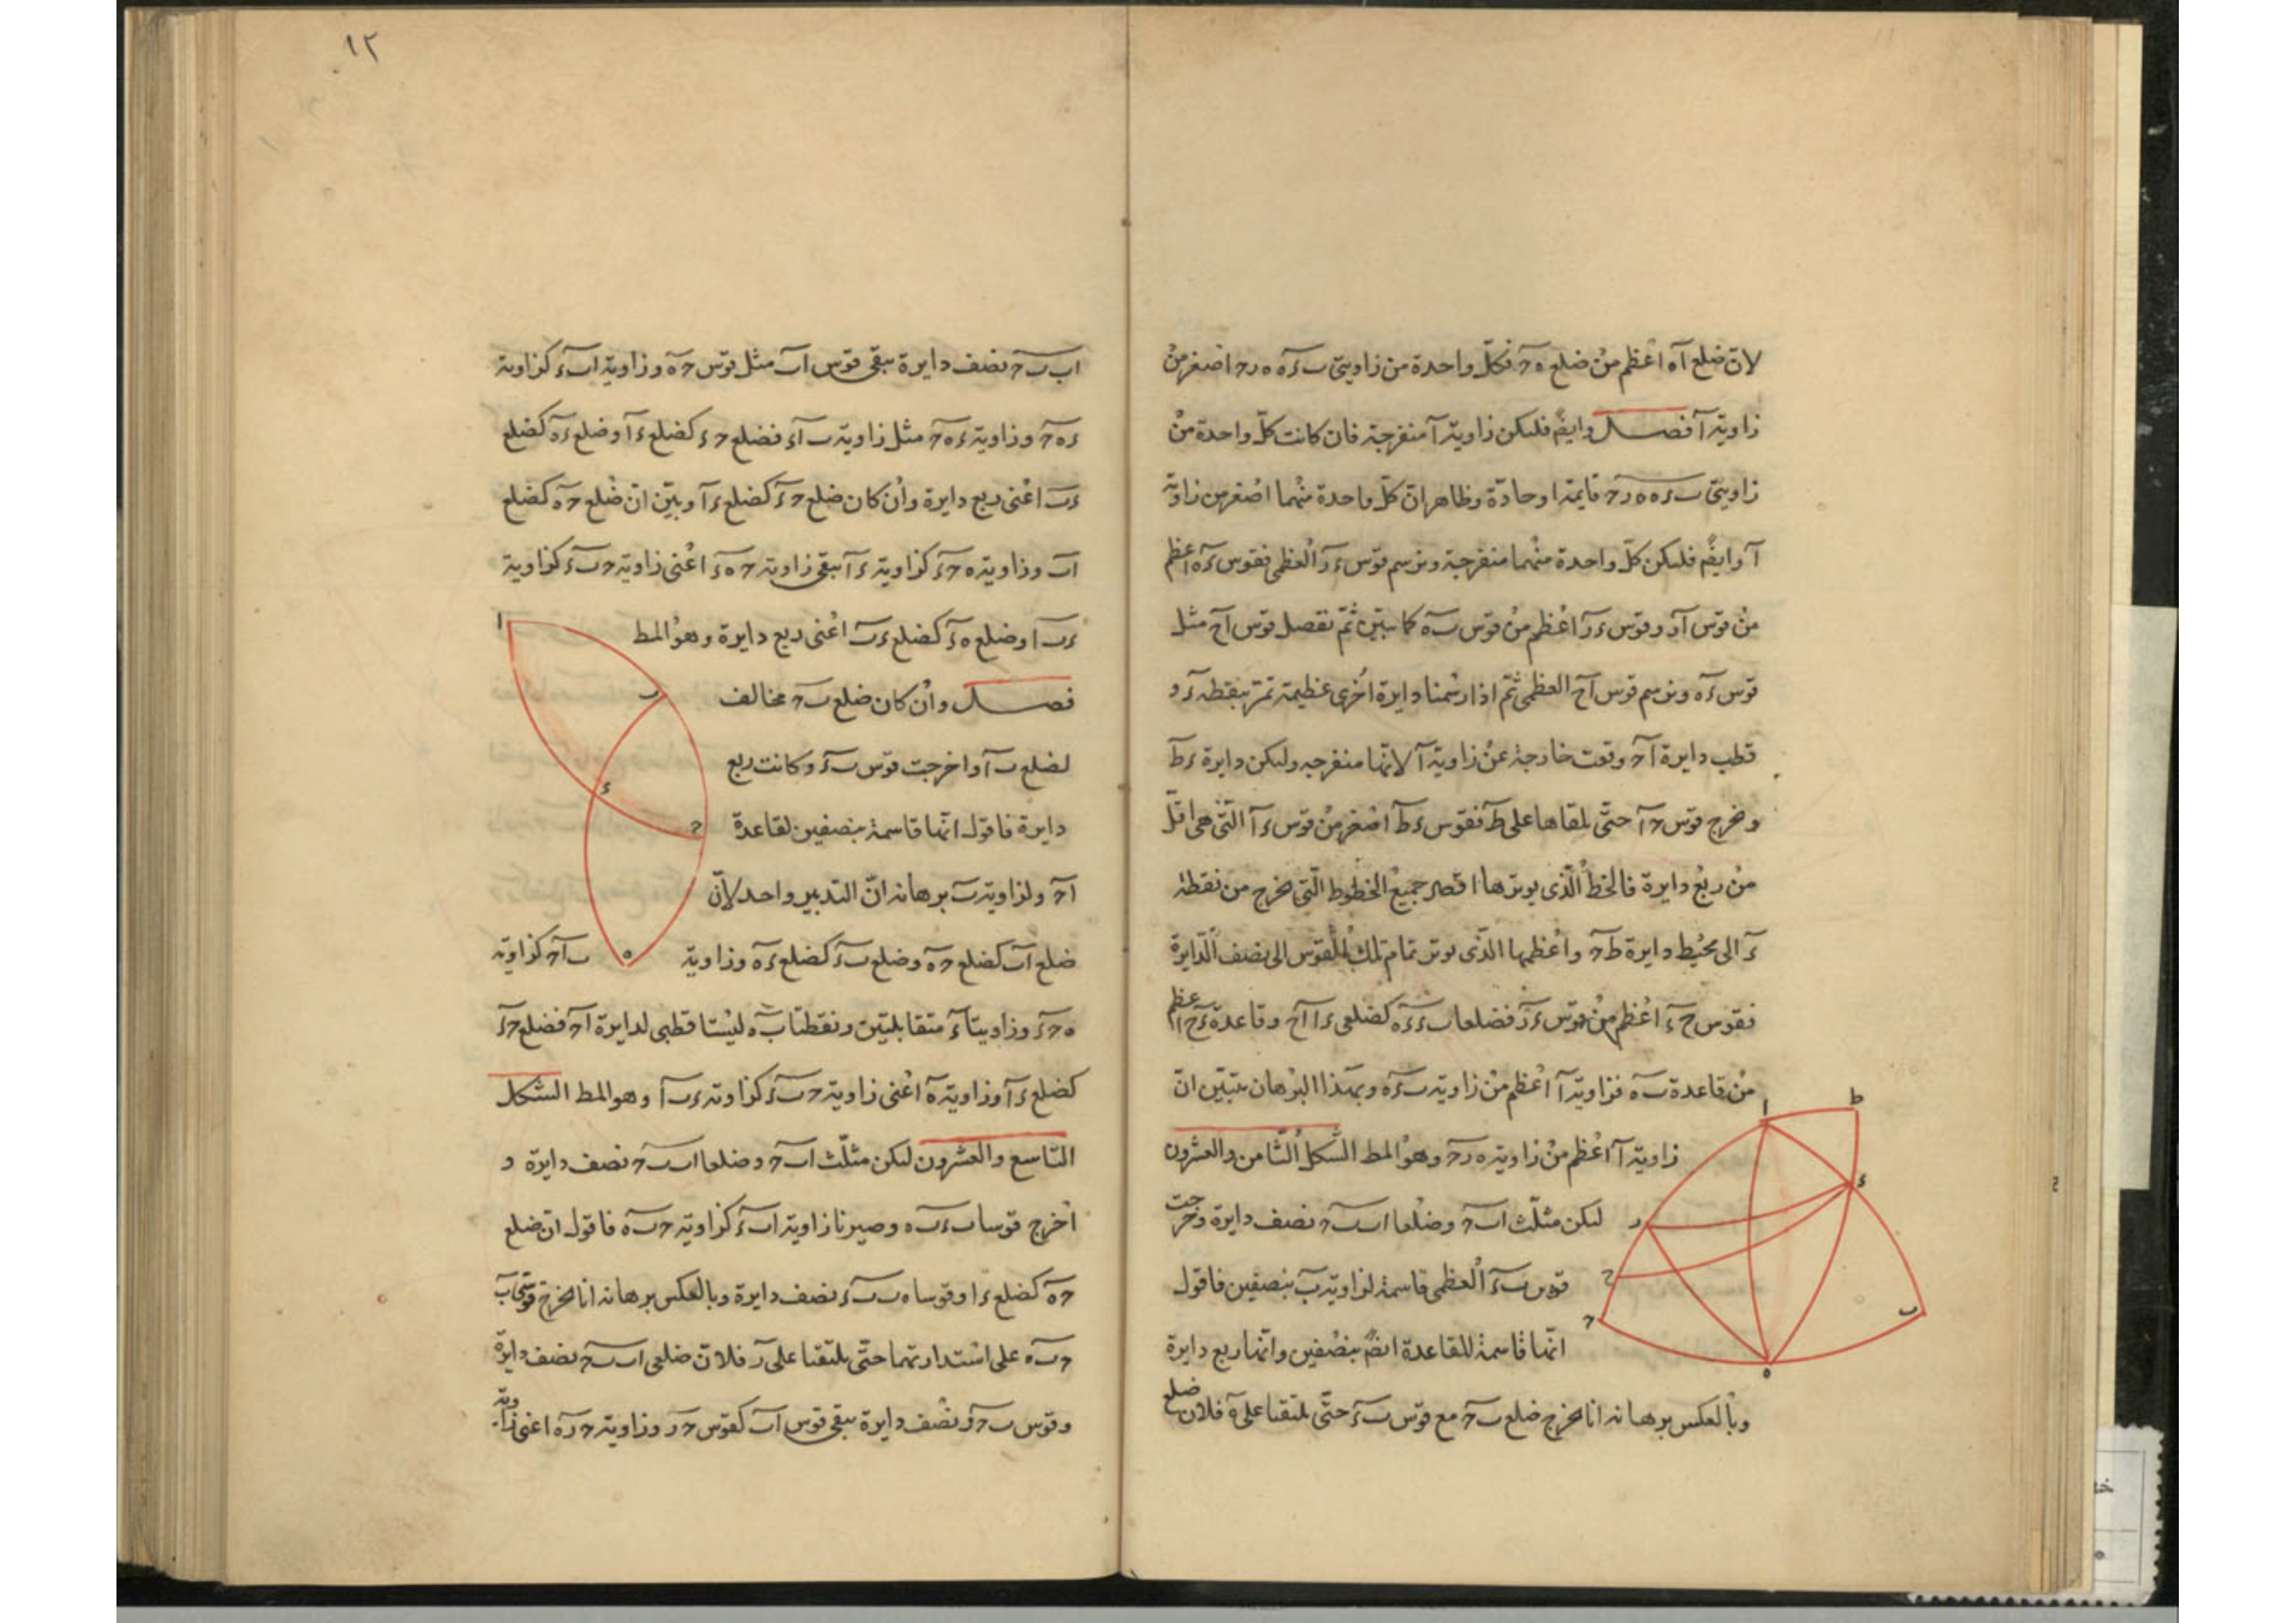 لانّ ضلع آه اعظم من ضلع ه حـ فكلّ واحدة من زاويتي ب ءه ه ر حـ اصغر من
زاوية آ فصل وايضً فليكن زاوية آ منفرجة فان كانت كلّ واحدة من
زاويتي ب ءه ه ر حـ قايمة او حادّة وظاهر انّ كلّ واحدة منهما اصغر من زاوية
آ وايضً فليكن كلّ واحدة منهما منفرجة ونرسم قوس ء ر العظمى فقوس ءه اعظم
من قوس آر وقوس ء ر اعظم من قوس ب ه كما تبيّن ثمّ نفصل قوس آح مثل
قوس ءه ونرسم قوس آح العظمى ثمّ اذا رسمنا دايرة اخرى عظيمة تمرّ بنقطة ء و
قطب دايرة آ حـ وقعت خارجة عن زاوية آ لانّها منفرجه وليكن دايرة ء ط
ونخرج قوس حـ آ حتّى يلقاها على ط فقوس ء ط اصغر من قوس ء آ الّتي هي اقلّ
من ربع دايرة فالخطّ الّذي يوترها اقصر جميع الخطوط الّتي تخرج من نقطة
ء الى محيط دايرة ط حـ واعظمها الّذي يوتر تمام تلك القوس الى نصف الدّايرة
فقوس ح ء اعظم من قوس ء ر فضلعا ب ء ءه كضلعي ء ا آح وقاعدة ء ح اعظم
من قاعدة ب ه فزاوية آ اعظم من زاوية ب ءه وبهذا البرهان يتبيّن انّ
زاوية آ اعظم من زاوية ه ر حـ وهو المط الشّكل الثّامن والعشرون
ليكن مثلّث ا ب حـ وضلعا ا ب ب حـ نصف دايرة وخرجت
قوس ب ء العظمى قاسمة لزاوية ب بنصفين فاقول
انّها قاسمة للقاعدة ايضً بنصفين وانّها ربع دايرة
وبالعكس برهانه انا نخرج ضلع ب حـ مع قوس ب ء حتّى يلتقيا على ه فلان ضلع
١٢
ا ب ب حـ نصف دايرة يبقى قوس ا ب مثل قوس حـ ه وزاوية ا ب ء كزاوية
ء ه حـ وزاوية ء ه حـ مثل زاوية ب آء فضلع حـ ء كضلع ء آ وضلع ء ه كضلع
ء ب اعني ربع دايرة وان كان ضلع حـ ء كضلع ء آ وبيّن انّ ضلع حـ ه كضلع
ا ب وزاوية ه حـ ء كزاوية ء آ يبقى زاوية حـ ه ء اعني زاوية حـ ب ء كزاوية
ء ب ا وضلع ه ء كضلع ء ب اعني ربع دايرة وهو المط
فصل وان كان ضلع ب حـ مخالف
لضلع ب آ واخرجت قوس ب ء وكانت ربع
دايرة فاقول انّها قاسمة بنصفين لقاعدة
ا حـ ولزاوية ب برهانه انّ التدبير واحد لانّ
ضلع ا ب كضلع حـ ه وضلع ب ء كضلع ء ه وزاوية ب آ حـ كزاوية
ه حـ ء وزاويتا ء متقابلتين ونقطتا ب ه ليستا قطبي لدايرة ا حـ فضلع حـ ء
كضلع ء آ وزاوية ه اعني زاوية حـ ب ء كزاوية ء ب آ وهو المط الشكل
التاسع والعشرون ليكن مثلّث ا ب حـ وضلعا ا ب ب حـ نصف دايرة و
اخرج قوسا ب ء ب ه وصيرنا زاوية ا ب ء كزاوية حـ ب ه فاقول ان ضلع
حـ ه كضلع ء ا وقوسا ه ب ب ء نصف دايرة وبالعكس برهانه انا نخرج قوسي ب
حـ ب ه على استدارتهما حتّى يلتقيا على ر فلانّ ضلعي ا ب ب حـ نصف دايرة
وقوس ب حـ ر نصف دايرة يبقى قوس ا ب كقوس حـ ر وزاوية حـ ر ه اعني زاوية